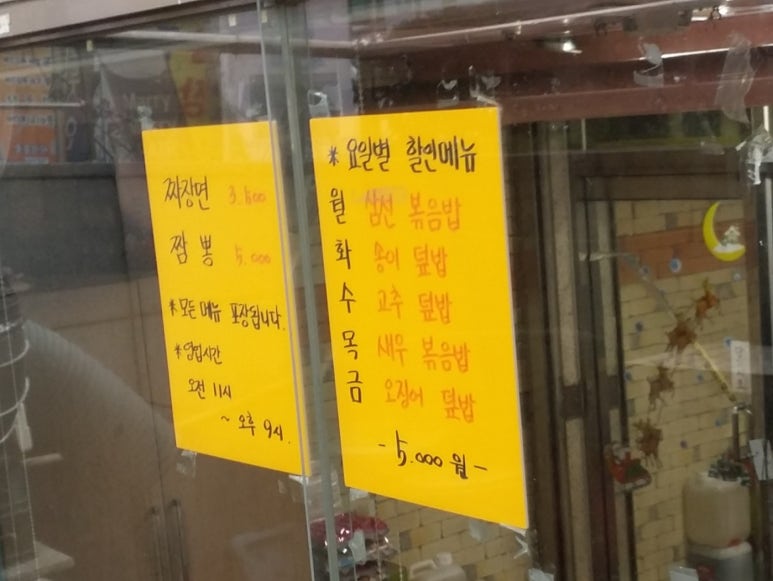 찌장면 3.500
짬뽕 5.000
*모든메뉴 포장됩니다.
*영업시간
오전 11시
~ 오후 9시.
* 요일별 할인메뉴
월 삼선 볶음밥
화 송이 덮밥
수 고추 덮밥
목 새우 볶음밥
금 오징어 덮밥
- 5.000 원 -